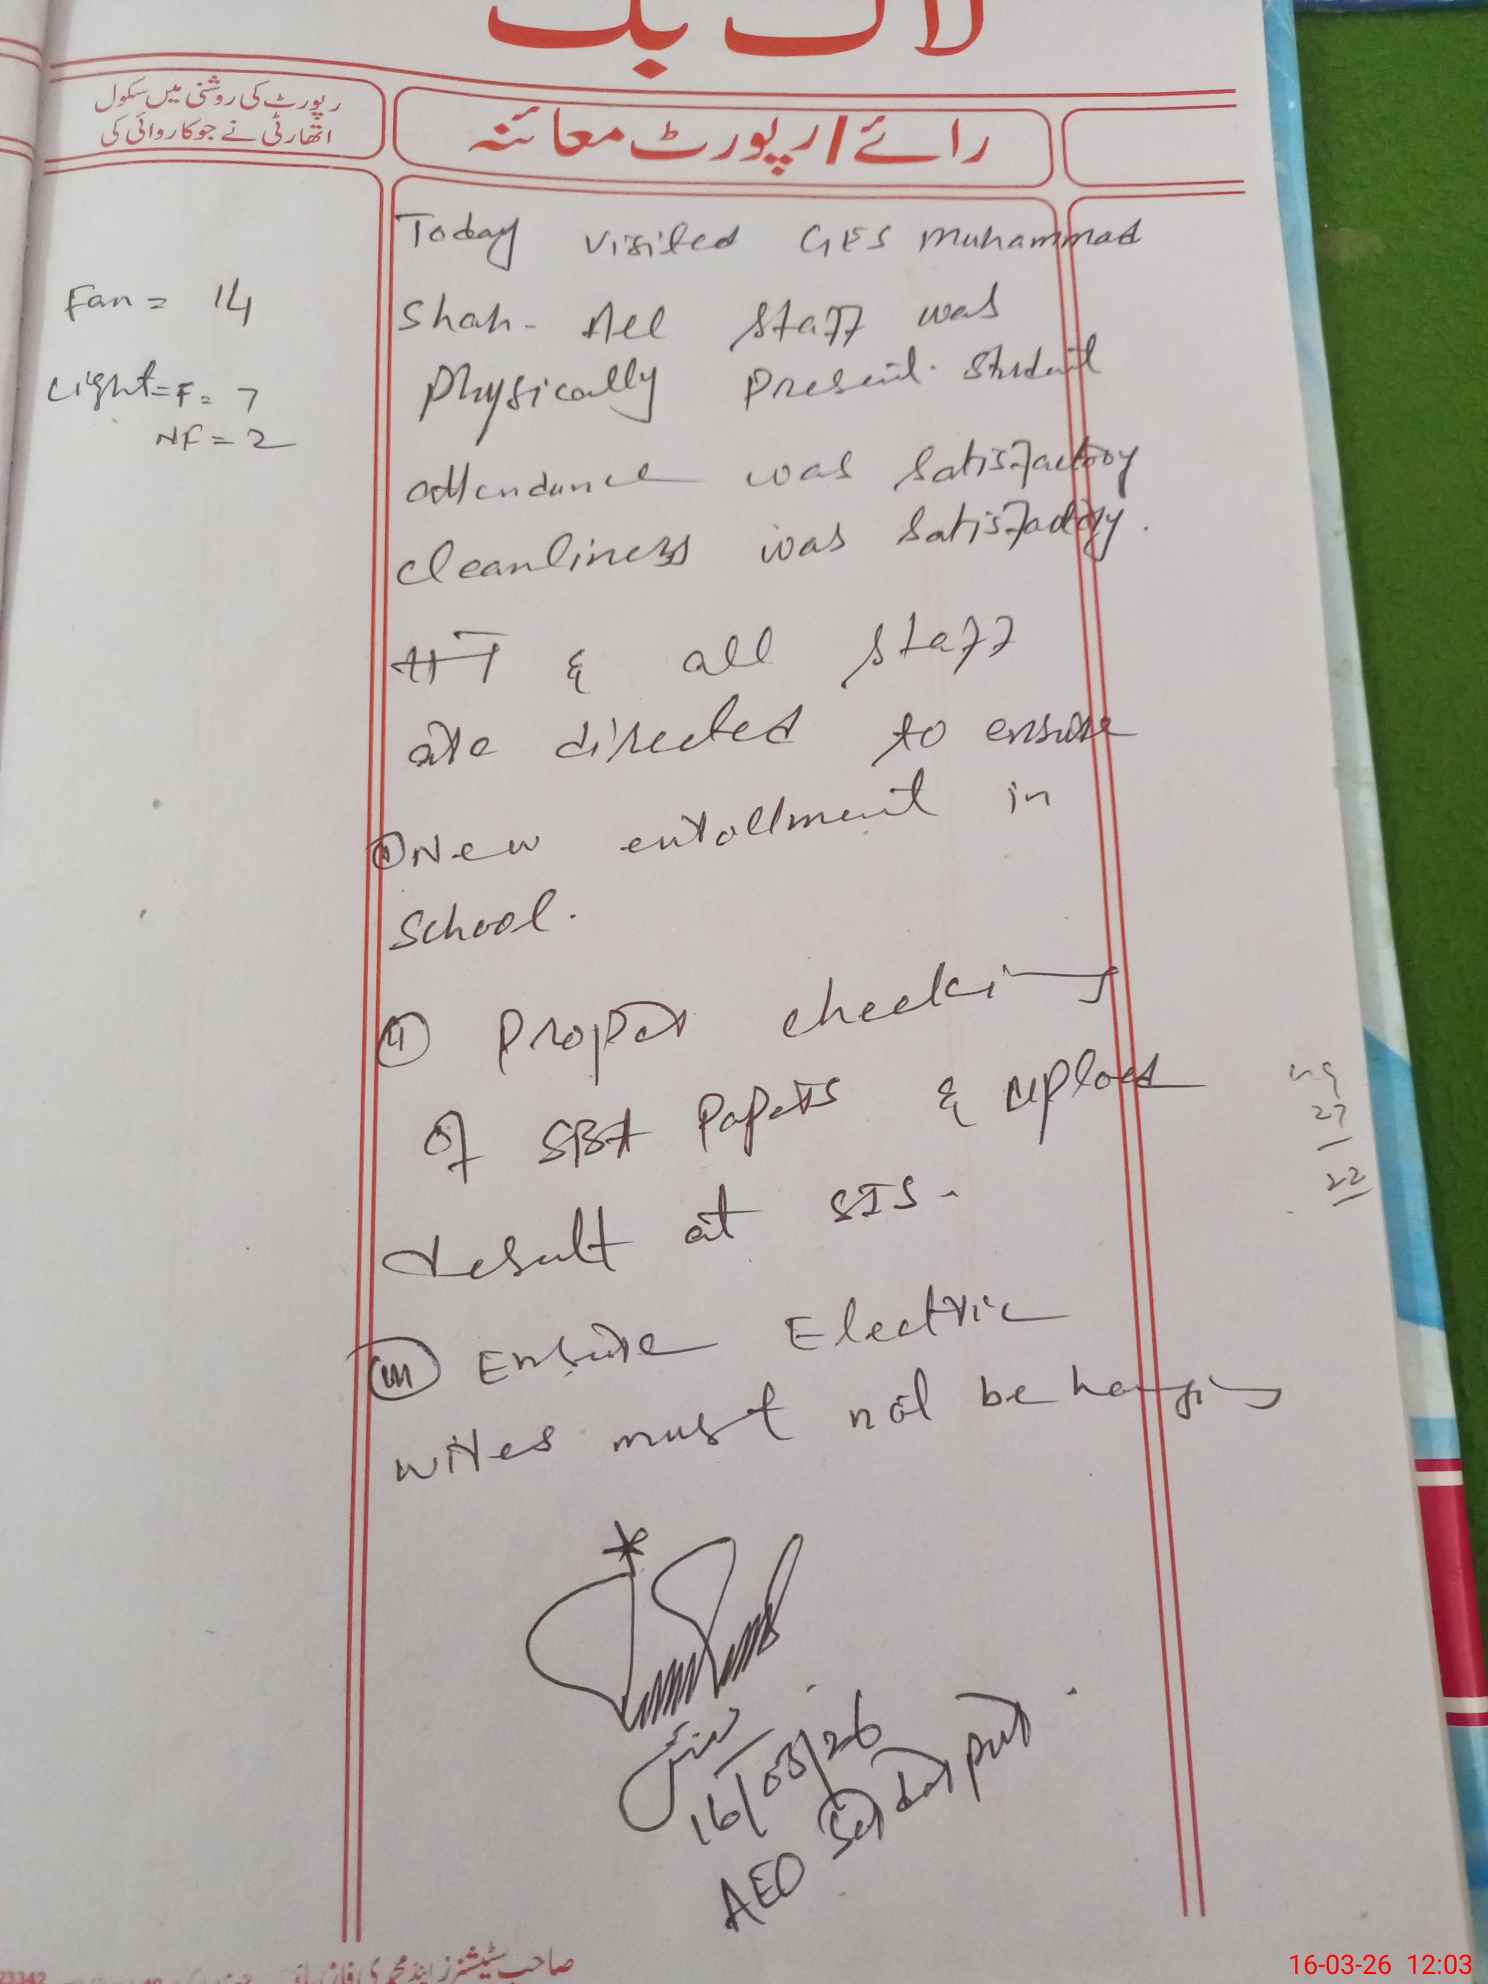 لاگ بک
رپورٹ کی روشنی میں سکول
اتھارٹی نے جو کاروائی کی
رائے / رپورٹ معائنہ
Today visited GES Muhammad
Shah - All staff was
Physically Present. Student
attendance was satisfactory
cleanliness was satisfactory.
HT & all staff
are directed to ensure
New enrollment in
School.
(ii) Proper checking
of SBA Papers & upload
result at SIS -
(iii) Ensure Electric
wires must not be hanging
Fan = 14
Light = F = 7
NF = 2
27
22
16/03/26
AEO Sardarpur
صاحب سٹیشنرز اینڈ
23342
16-03-26 12:03